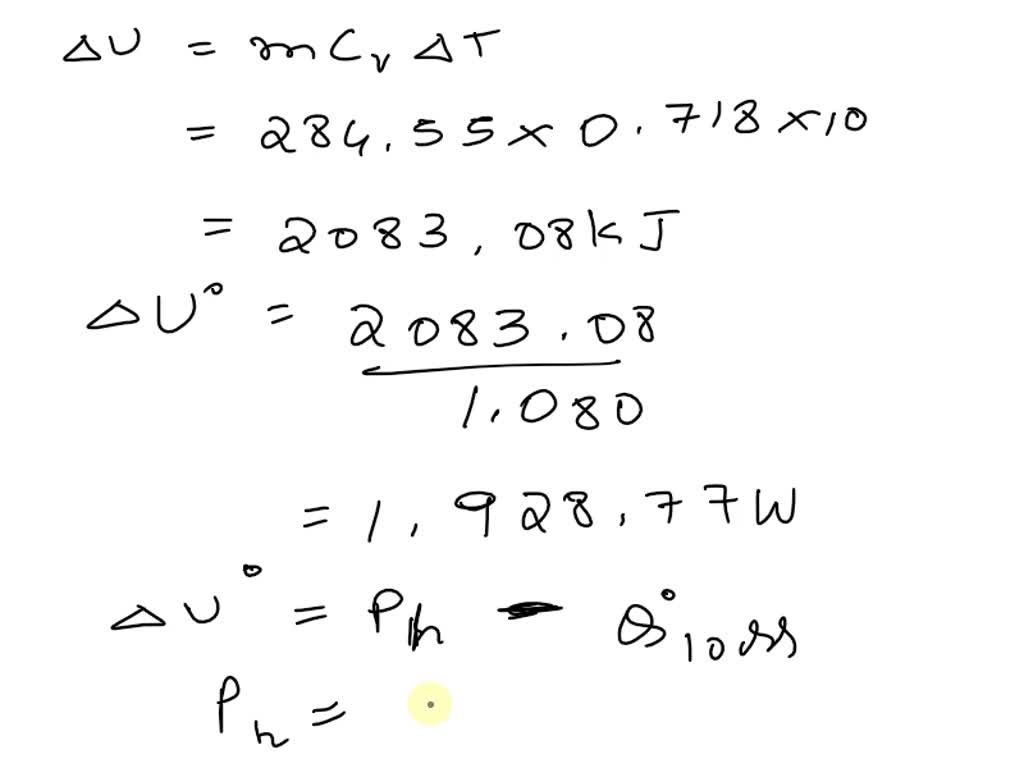 ΔU = mCᵥ ΔT
= 284.55 × 0.718 × 10
= 2083.08 kJ
ΔU° = 2083.08
1.080
= 1,928.77 W
ΔU° = Pₕ - Q°loss
Pₕ =